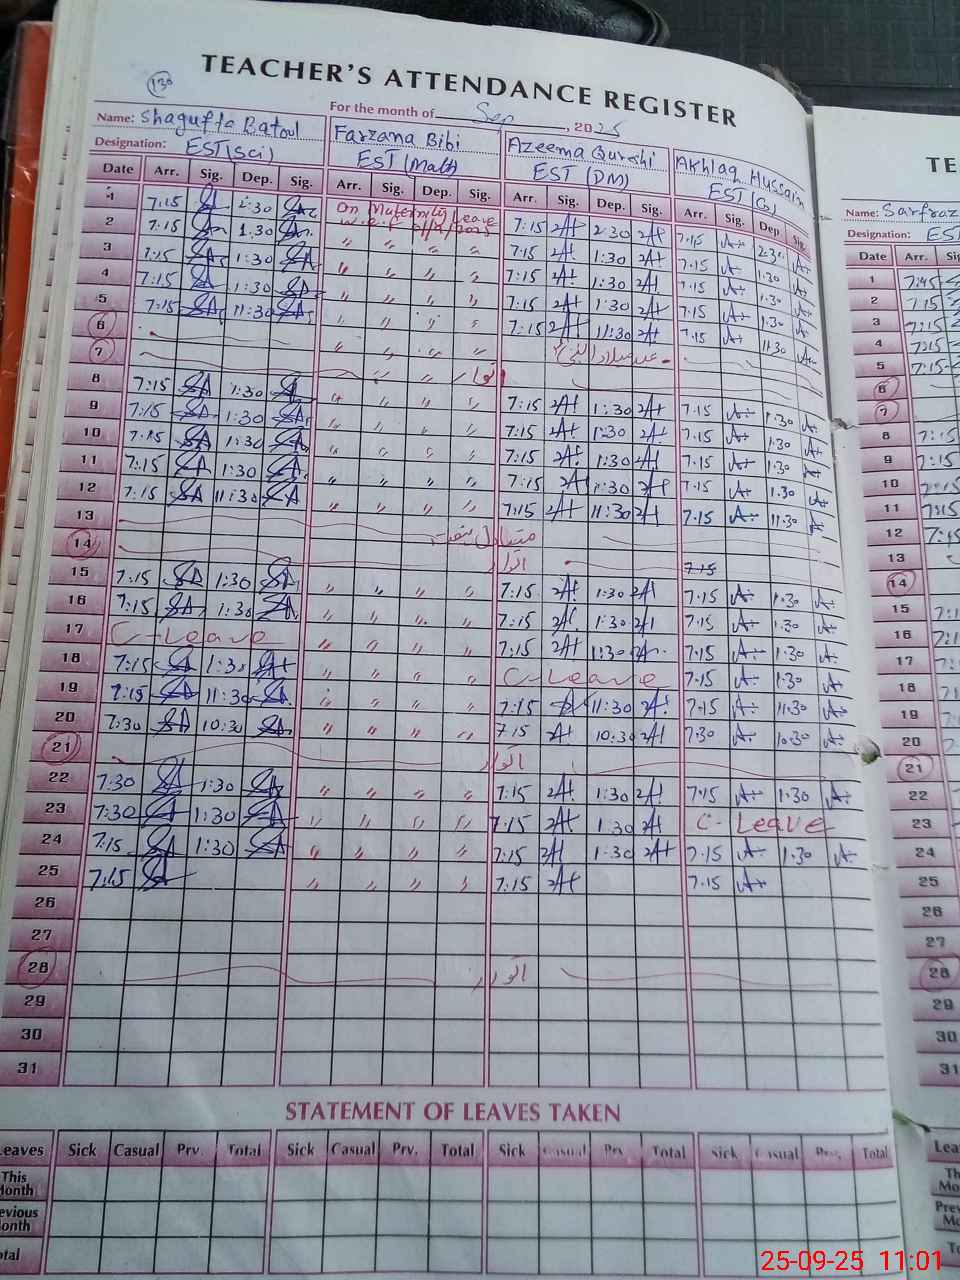 130
TEACHER'S ATTENDANCE REGISTER
For the month of Sep, 2025
Name: Shagufta Batoul Farzana Bibi Azeema Qureshi Akhlaq Hussain
Designation: EST(Sci) EST (Math) EST (DM) EST (G)
Date Arr. Sig. Dep. Sig. Arr. Sig. Dep. Sig. Arr. Sig. Dep. Sig. Arr. Sig. Dep. Sig.
1 7:15 1:30 On Maternity Leave 7:15 2:30 7.15 2:30
2 7:15 1.30 w.e.f 7:15 1:30 7.15 1.30
3 7:15 1:30 " " " " 7:15 1:30 7.15 1.30
4 7:15 1:30 " " " " 7:15 1:30 7.15 1.30
5 7:15 11:30 " " " " 7:15 11:30 7.15 11.30
6 " " " " عید میلاد النبی
7 " " " اتوار
8 7:15 1:30 " " " " 7:15 1:30 7.15 1.30
9 7:15 1:30 " " " " 7:15 1:30 7.15 1.30
10 7:15 1:30 " " " " 7:15 1:30 7.15 1.30
11 7:15 1:30 " " " " 7:15 1:30 7.15 1.30
12 7:15 11:30 " " " " 7:15 11:30 7.15 11.30
13
14 اتوار 7.15
15 7:15 1:30 " " " " 7:15 1:30 7.15 1.30
16 7:15 1:30 " " " " 7:15 1:30 7.15 1.30
17 C-Leave " " " " 7:15 1:30 7.15 1.30
18 7:15 1:30 " " " " C-Leave 7.15 1.30
19 7:15 11:30 " " " " 7:15 11:30 7.15 11.30
20 7:30 10:30 " " " " 7:15 10:30 7.30 10.30
21 اتوار
22 7:30 1:30 " " " " 7:15 1:30 7.15 1.30
23 7:30 1:30 " " " " 7:15 1:30 C-Leave
24 7:15 1:30 " " " " 7:15 1:30 7.15 1.30
25 7:15 " " " " 7:15 7.15
26
27
28 اتوار
29
30
31
STATEMENT OF LEAVES TAKEN
Leaves Sick Casual Prv. Total Sick Casual Prv. Total Sick Casual Prv. Total Sick Casual Prv. Total
This Month
Previous Month
Total
TE
Name: Sarfraz
Designation: EST
Date Arr. Sig
1 7:45
2 7:15
3 7:15
4 7:15
5 7:15
6
7
8 7:15
9 7:15
10 7:15
11 7:15
12 7:15
13
14
15
16
17
18
19
20
21
22
23
24
25
26
27
28
29
30
31
25-09-25 11:01